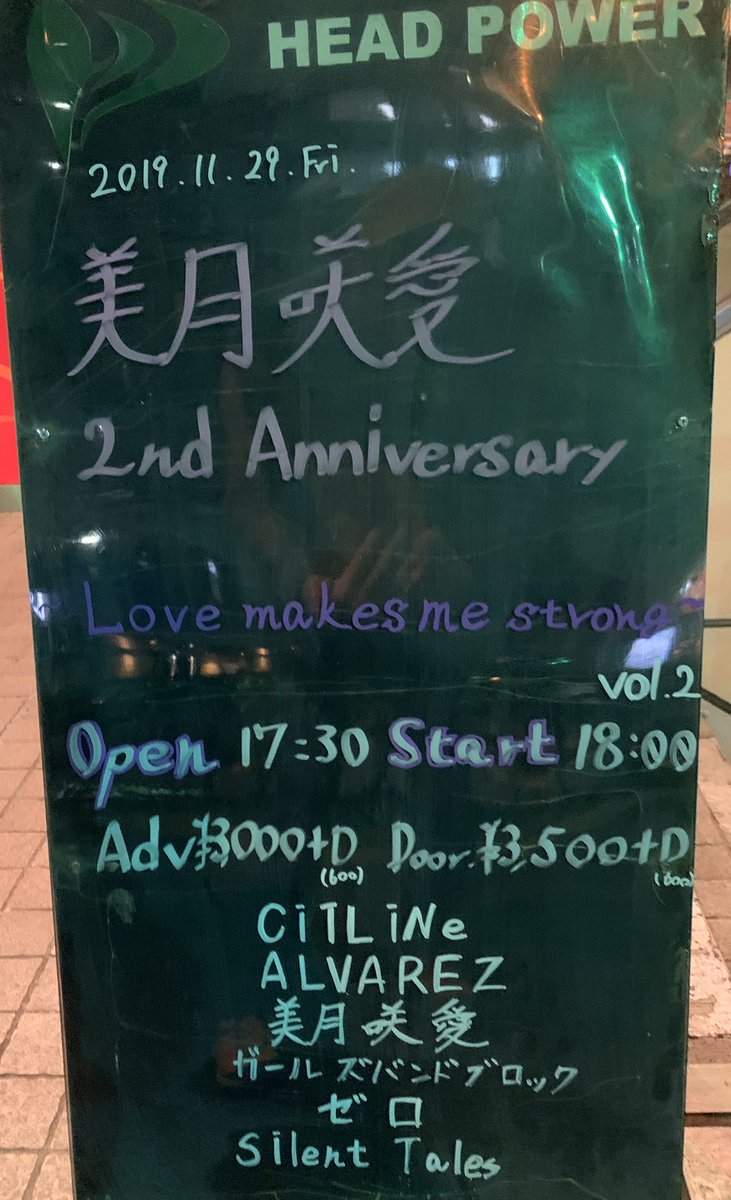 HEAD POWER
2019.11.29.Fri.
美月咲愛
2nd Anniversary
~Love makes me strong~
vol.2
Open 17:30 Start 18:00
Adv¥3000+D Door.¥3,500+D
(600) (600)
CiTLiNe
ALVAREZ
美月咲愛
ガールズバンドブロック
ゼロ
Silent Tales